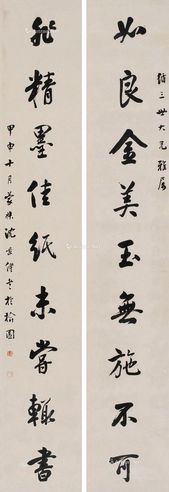 三世大兄雅屬
如良金美玉無施不可
非精墨佳紙未嘗輒書
甲申十月蒙叔沈景修書於榆園